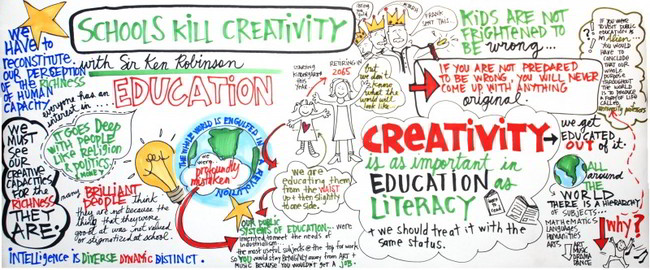 WE
HAVE to
RECONSTITUTE
OUR PERCEPTION
OF THE RICHNESS
OF HUMAN
CAPACITY
SCHOOLS KILL CREATIVITY
with Sir Ken Robinson
everyone has an
interest in....
EDUCATION
IT GOES Deep
WITH PEOPLE
LIKE RELIGION
& POLITICS
WE MUST
SEE
OUR
CREATIVE
CAPACITIES
FOR the
RICHNESS
THEY
ARE.
many
BRILLIANT
PEOPLE Think
they are not because the
thing that they were
good at was not valued
or stigmatized at school.
INTELLIGENCE IS DIVERSE DYNAMIC DISTINCT.
THE WHOLE WORLD IS ENGULFED IN REVOLUTION
profoundly
mistaken
STARTING
KINDERGARTEN
THIS
RETIRING IN
2065
But
we don't
know
what the
world will
look like
we are
educating them
from the WAIST
up & then slightly
to one side.
OUR PUBLIC
SYSTEMS OF EDUCATION... were
invented to meet the needs of
industrialism
the most useful subjects @ the top for work
so YOU would STEER
MUSIC BECAUSE YOU WOULDN'T GET A JOB.
FRANK
KIDS ARE NOT
FRIGHTENED TO
be wrong...
IF YOU ARE NOT PREPARED
TO BE WRONG, YOU WILL NEVER
COME UP WITH ANYTHING
original
IF YOU
WERE TO VISIT
EDUCATION
AS AN
Alien...
YOU WOULD
HAVE TO
CONCLUDE
THAT OUR
PURPOSE
THROUGHOUT
THE WORLD
IS TO PRODUCE
CREATIVITY
is as important in
EDUCATION as
LITERACY
+ we should treat it with the
same status.
we get
EDUCATED
OUT of it.
ALL
around
THE
WORLD
THERE IS A HIERARCHY
OF SUBJECTS...
MATHEMATICS
LANGUAGES
HUMANITIES
ARTS
ART
MUSIC
DRAMA
DANCE
why?